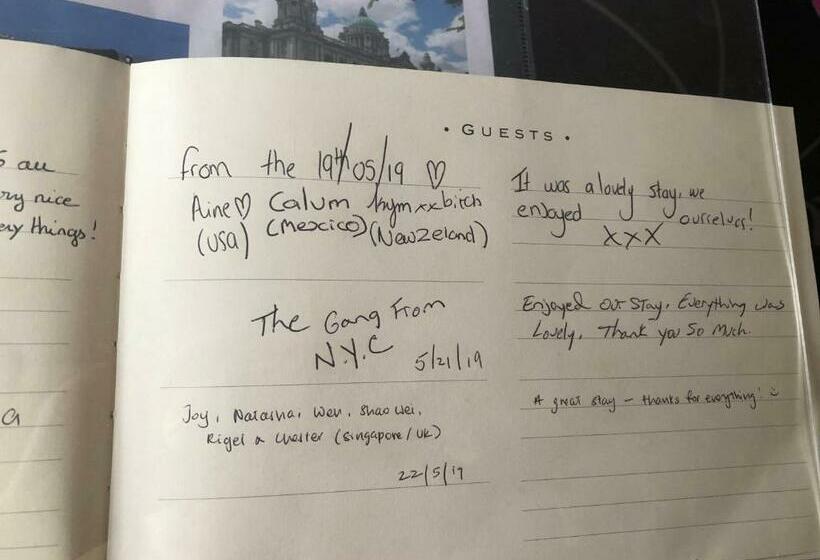 s all
ry nice
ery things!
a
• GUESTS •
from the 19th/05/19 ♡
Aine♡ Calum kym xx bitch
(USA) (Mexico) (New Zeland)
The Gang From
N.Y.C 5/21/19
Joy, Natasha, Wen, Shao Wei,
Rigel & Chester (Singapore/UK)
22/5/19
It was a lovely stay, we
enjoyed ourselves!
xxx
Enjoyed Our Stay, Everything was
Lovely, Thank you So Much.
A great stay – thanks for everything! :)